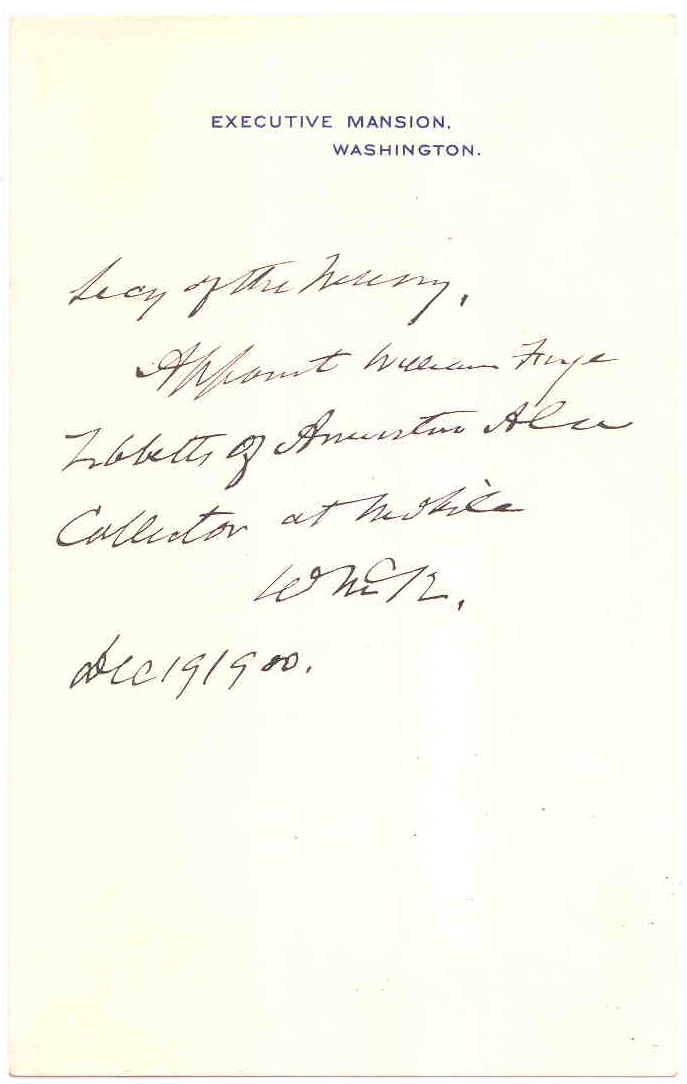 EXECUTIVE MANSION,
WASHINGTON.
Secy of the Treasury,
Appoint William Frye
Tibbetts of Anniston Ala
Collector at Mobile
WMcK.
Dec 19 1900.